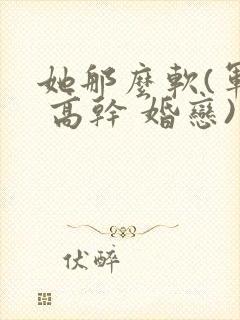 她那麼軟(軍
高幹 婚戀)
伏醉